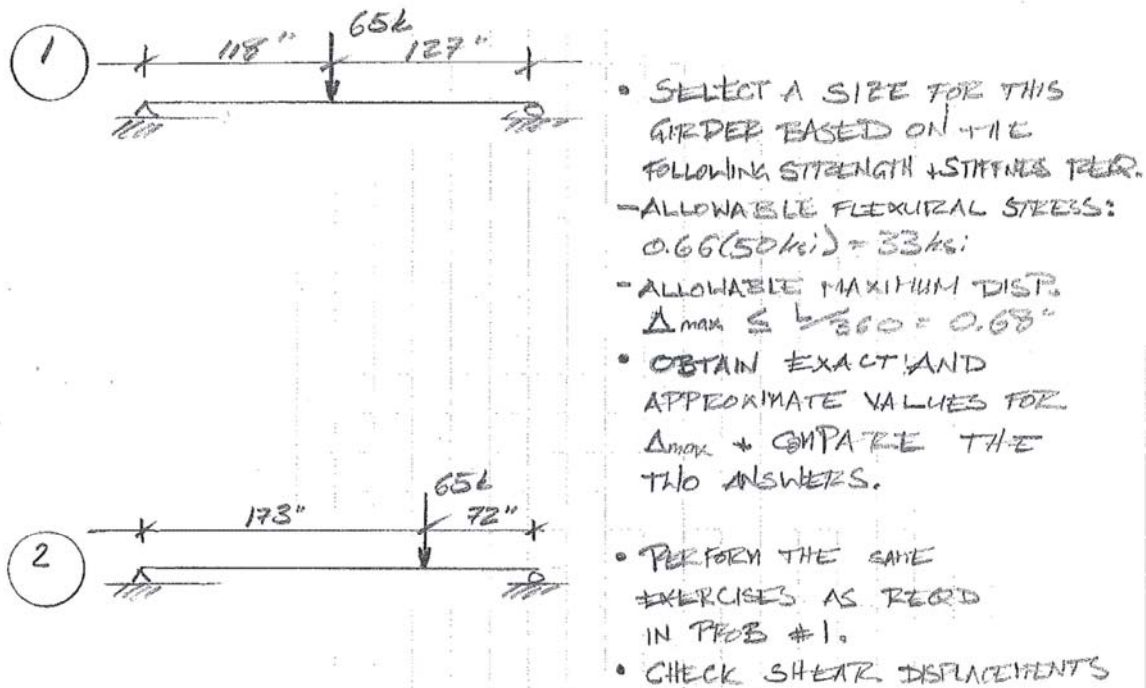 1
65k
118" 127"
• SELECT A SIZE FOR THIS
GIRDER BASED ON THE
FOLLOWING STRENGTH + STIFFNES REQ.
- ALLOWABLE FLEXURAL STRESS:
0.66(50ksi) = 33ksi
- ALLOWABLE MAXIMUM DISP.
Δmax ≤ L/360 = 0.68"
• OBTAIN EXACT AND
APPROXIMATE VALUES FOR
Δmax + COMPARE THE
TWO ANSWERS.
2
65k
173" 72"
• PERFORM THE SAME
EXERCISES AS REQ'D
IN PROB #1.
• CHECK SHEAR DISPLACEMENTS